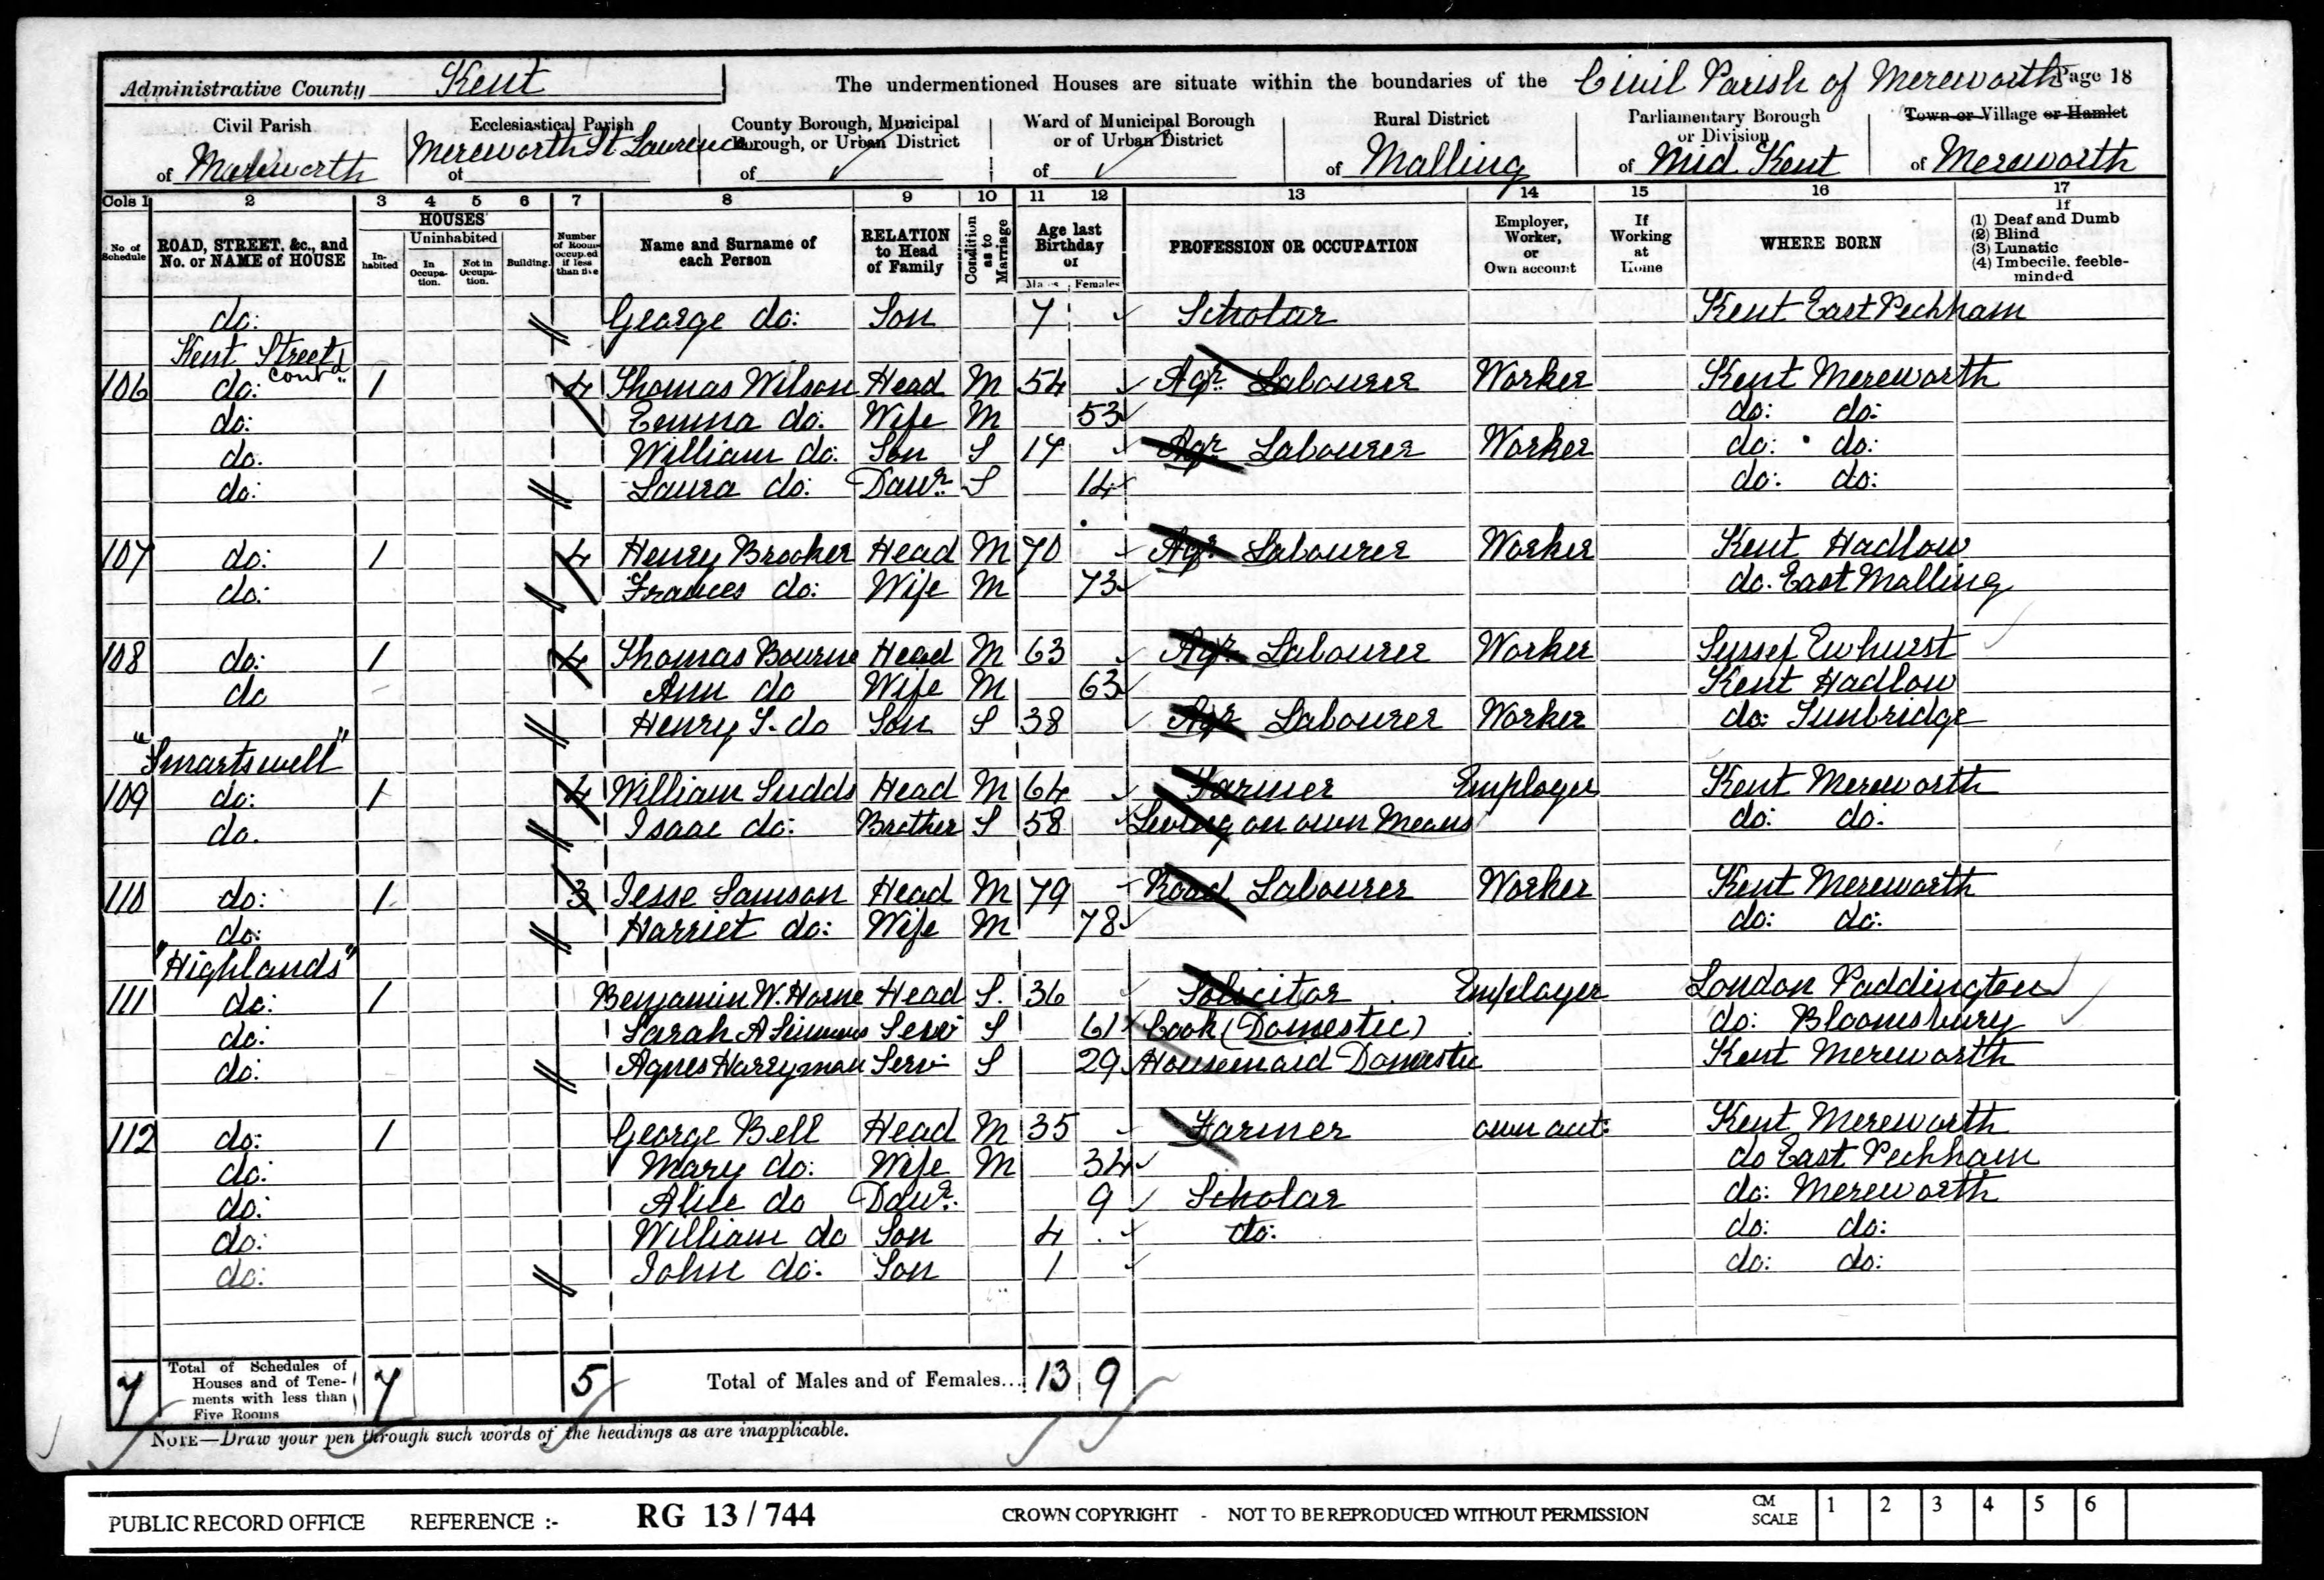 Administrative County Kent The undermentioned Houses are situate within the boundaries of the Civil Parish of Mereworth Page 18
Civil Parish of Mereworth
Ecclesiastical Parish of Mereworth St Laurence
County Borough, Municipal Borough, or Urban District of
Ward of Municipal Borough or of Urban District of
Rural District of Malling
Parliamentary Borough or Division of Mid Kent
Town or Village or Hamlet of Mereworth
Cols 1 2 3 4 5 6 7 8 9 10 11 12 13 14 15 16 17
No of Schedule
ROAD, STREET, &c., and No. or NAME of HOUSE
HOUSES
Inhabited
Uninhabited
In Occupation.
Not in Occupation.
Building.
Number of Rooms occupied if less than five
Name and Surname of each Person
RELATION to Head of Family
Condition as to Marriage
Age last Birthday of
Males Females
PROFESSION OR OCCUPATION
Employer, Worker, or Own account
If Working at Home
WHERE BORN
If
(1) Deaf and Dumb
(2) Blind
(3) Lunatic
(4) Imbecile, feeble-minded
do: George do: Son 7 Scholar Kent East Peckham
Kent Street contd
106 do: 1 4 Thomas Wilson Head M 54 Agr Labourer Worker Kent Mereworth
do: Emma do. Wife M 53 do: do:
do. William do: Son S 17 Agr Labourer Worker do: do:
do: Laura do: Daur S 14 do: do:
107 do: 1 4 Henry Brooker Head M 70 Agr Labourer Worker Kent Hadlow
do: Frances do: Wife M 73 do. East Malling
108 do: 1 4 Thomas Bourne Head M 63 Agr Labourer Worker Sussex Ewhurst
do Ann do Wife M 63 Kent Hadlow
do Henry S. do Son S 38 Agr Labourer Worker do: Tunbridge
"Smartswell"
109 do: 1 4 William Sudds Head M 64 Farmer Employer Kent Mereworth
do. Isaac do: Brother S 58 Living on own Means do: do:
110 do: 1 3 Jesse Samson Head M 79 Road Labourer Worker Kent Mereworth
do: Harriet do: Wife M 78 do: do:
"Highlands"
111 do: 1 Benjamin W. Horne Head S. 36 Solicitor Employer London Paddington
do: Sarah A Simmons Serv S 61 Cook (Domestic) do: Bloomsbury
do: Agnes Harryman Serv S 29 Housemaid Domestic Kent Mereworth
112 do: 1 George Bell Head M 35 Farmer own act: Kent Mereworth
do: Mary do: Wife M 34 do East Peckham
do: Alice do Daur. 9 Scholar do: Mereworth
do: William do Son 4 do: do: do:
do: John do: Son 1 do: do:
7 Total of Schedules of Houses and of Tenements with less than Five Rooms 7 5 Total of Males and of Females... 13 9
NOTE—Draw your pen through such words of the headings as are inapplicable.
PUBLIC RECORD OFFICE REFERENCE :- RG 13 / 744 CROWN COPYRIGHT - NOT TO BE REPRODUCED WITHOUT PERMISSION CM SCALE 1 2 3 4 5 6